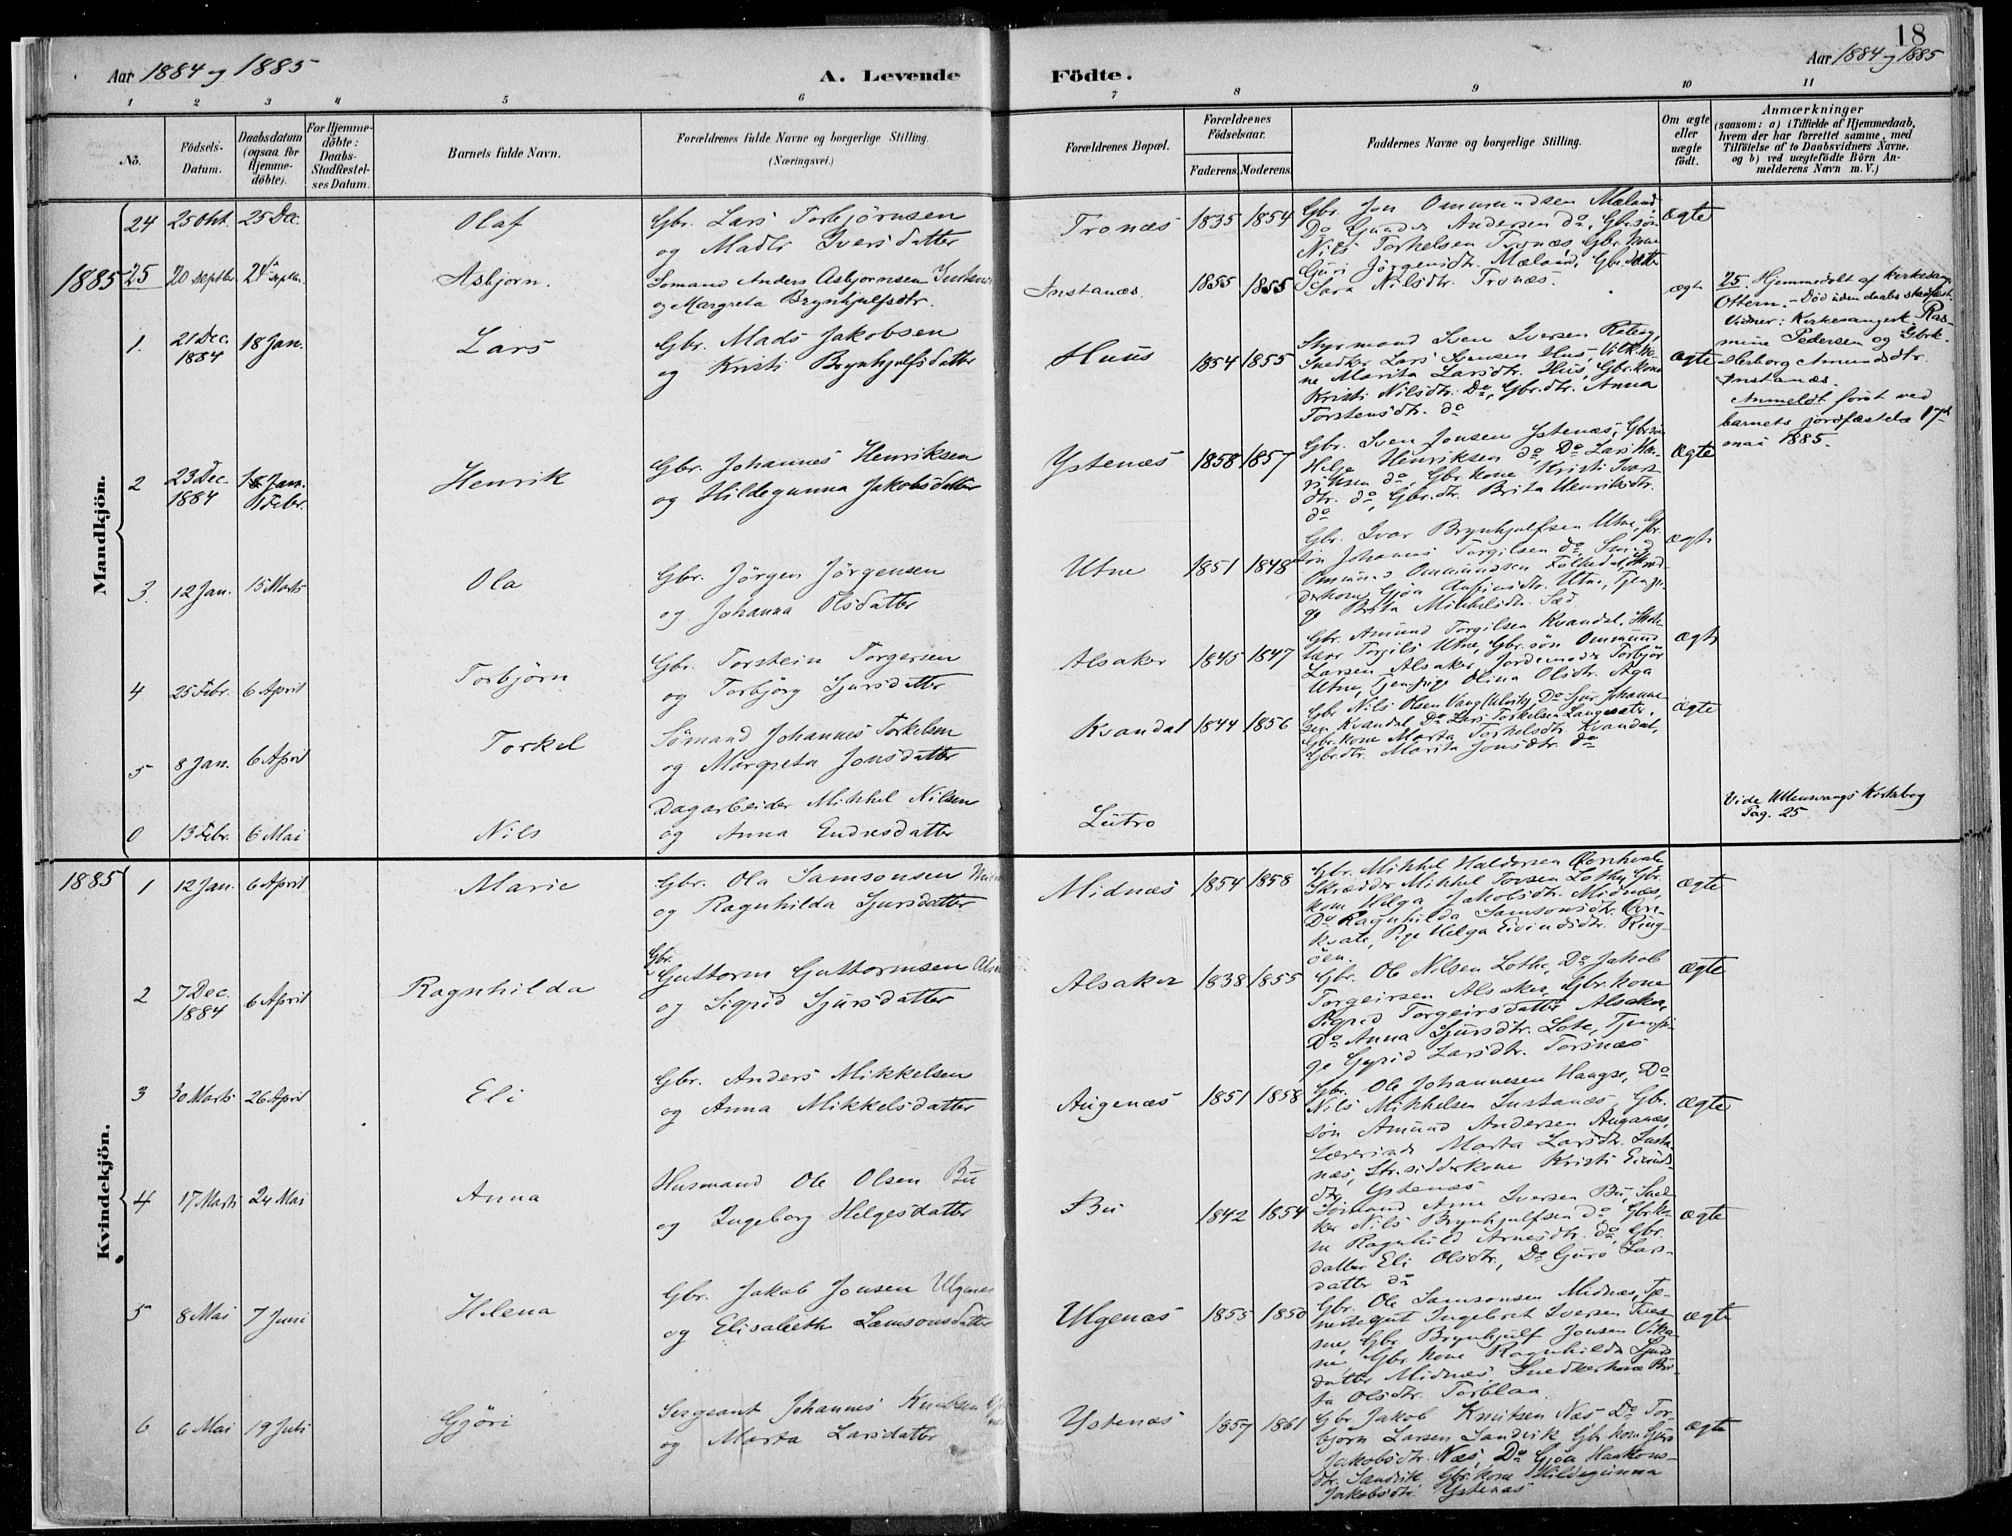 18
Aar 1884 og 1885
A. Levende
Födte.
Aar 1884 og 1885
1 2 3 4 5 6 7 8 9 10 11
No.
Födsels-
Datum.
Daabsdatum
(ogsaa for
Hjemme-
döbte).
For Hjemme-
döbte:
Daabs-
Stadfæstel-
ses Datum.
Barnets fulde Navn.
Forældrenes fulde Navne og borgerlige Stilling.
(Næringsvei.)
Forældrenes Bopæl.
Forældrenes
Födselsaar.
Faderens. Moderens.
Faddernes Navne og borgerlige Stilling.
Om ægte
eller
uægte
födt.
Anmærkninger
(saasom: a) i Tilfælde af Hjemmedaab,
hvem der har forrettet samme, med
Tilföielse af to Daabsvidners Navne.
og b) ved uægtefödte Börn An-
melderens Navn m. V.)
Mandkjön.
24 25 Okt. 25 Dec. Olaf
Gbr. Lars Torbjörnsen
og Madli Iversdatter
Tronæs 1835 1854
Gbr. Jon Ommundsen Mæland,
Do Gunder Andersen do, Gbr.sön
Nils Torkelsen Tronæs, Gbr.kone
Guri Jörgensdtr. Mæland, Gbr.datter
Sara Nilsdtr. Tronæs.
ægte
1885 25 20 septbr. 21 septbr. Asbjorn.
Somand Anders Asbjornsen Instenæs
og Margreta Brynhjulfsdtr.
Instanæs. 1855 1855 ægte
25. Hjemmedøbt af Kirkesang.
Ottern. - Død uden daabs stadfæst.
Vidner: Kirkesangerk. Ras-
mine Pedersen og Gbrk.
Herborg Amundsdtr.
Instanæs.
Anmeldt først ved
barnets jordfæstelse 17de
mai 1885.
1. 21 Dec. 1884 18 Jan. Lars
Gbr. Mads Jakobsen
og Kristi Brynhjulfsdatter
Huus 1854 1855
Styrmand Sven Iversen
Snedker Lars Svensen Hus,
ne Marita Larsdtr. Hus, Gbr.kone
Kristi Nilsdtr. Do, Gbr.dtr. Anna
Torstensdtr. do
ægte
2 23 Dec. 1884 18 Jan. 1 Febr. Henrik
Gbr. Johannes Henriksen
og Hildegunna Jakobsdatter
Ystenæs 1858 1857
Gbr. Sven Jonsen Ystenæs, Gbr.sön
Helge Henriksen do, Do Lars Hen-
riksen do, Gbr.kone Kristi Ivars-
dtr. do, Gbr.dtr. Brita Henriksdtr.
do
Ægte
3. 12 Jan. 15 Marts Ola
Gbr. Jörgen Jörgensen
og Johanna Olsdatter
Utne 1851 1848
Gbr. Ivar Brynhjulfsen Utne, Gbr.
sön Johannes Torgilsen do, Smed
Ommund Ommundsen
derkone Gjöa Utne, Tjenpi-
ge Brita Mikkelsdtr. Sæd.
ægte
4 25 Febr. 6 April Torbjörn
Gbr. Torstein Torgersen
og Torbjörg Sjursdatter
Alsaker 1845 1847
Gbr. Amund Torgilsen Kvandal, Skole-
lærer Torgils Utne, Gbr.sön Ommund
Larsen Alsaker, Jordemoder Torbjör
Utne, Tjen.pige Olina Olsdtr. Aga
ægte
5 8 Jan. 6 April Torkel
Sömand Johannes Torkelsen
og Margreta Jonsdatter
Kvandal 1844 1856
Gbr. Nils Olsen Vang (Ulvik), Do Sjur Johanne-
sen Kvandal, Do Lars Torkelsen Langesæter,
Gbr.kone Marta Torkelsdtr. Kvandal,
Gbr.dtr. Marita Jonsdtr. do
ægte
0 13 Febr. 6 Mai Nils
Dagarbeider Mikkel Nilsen
og Anna Endresdatter
Lutro
Vide Ullensvangs Kirkebog
Pag. 25
1885
Kvindekjön.
1 12 Jan. 6 April Marie
Gbr. Ola Samsonsen
og Ragnhilda Sjursdatter
Midnæs 1854 1858
Gbr. Mikkel Haldorsen
Skrædder Mikkel Tovsen Lothe, Gbr.
kone Helga Jakobsdtr. Midnæs,
Do Ragnhilda Samsonsdtr.
Pige Helga Eivindsdtr. Ring-
öen.
ægte
2 7 Dec. 1884 6 April Ragnhilda
Gbr.
Guttorm Guttormsen
og Sigrid Sjursdatter
Alsaker 1838 1855
Gbr. Ole Nilsen Lothe, Do Jakob
Torgeirsen Alsaker, Gbr.kone
Sigrid Torgeirsdatter Alsaker,
Do Anna Sjursdtr. Lote, Tjenpi-
ge Gyrid Larsdtr. Torsnæs
ægte
3 30 Marts 26 April Eli
Gbr. Anders Mikkelsen
og Anna Mikkelsdatter
Augenæs 1851 1858
Gbr. Ole Johannesen Haugse, Do
Nils Mikkelsen Instanæs, Gbr.
sön Amund Andersen Auganæs,
Lærerinde Marta Larsdtr. Insta-
næs, Str.sidderkone Kristi Eivinds-
dtr. Ystenæs
ægte
4 17 Marts 24 Mai Anna
Husmand Ole Olsen Bu
og Ingeborg Helgesdatter
Bu 1842 1854
Sömand Arne Iversen Bu, Sned-
ker Nils Brynhjulfsen do, Gbr.ko-
ne Ragnhild Arnesdtr. do, Gbr.
datter Eli Olsdtr., Do Guro Lars-
datter do
ægte
5 8 Mai 7 Juni Helena
Gbr. Jakob Jonsen Ulgenes
og Elisabeth Samsonsdatter
Ulgenæs 1855 1850
Gbr. Ole Samsonsen Midnæs, Tje-
nestegut Ingebret Iversen
Gbr. Brynhjulf Jonsen Vika-
ne, Gbr.kone Ragnhilda Sjurs-
datter Midnæs, Snedkerkone Bri-
ta Olsdtr. Torblaa.
ægte
6 6 Mai 19 Juli Gjöri
Sergeant Johannes Knutsen
og Marta Larsdatter
Ystenæs 1857 1861
Gbr. Jakob Knutsen Næs, Do Tor-
björn Larsen Sandvik, Gbr.kone Guro
Jakobsdtr. Næs, Do Gjöa Haakons-
dtr. Sandvik, Gbr.kone Hildegunna
Jakobsdtr. Ystenæs
ægte